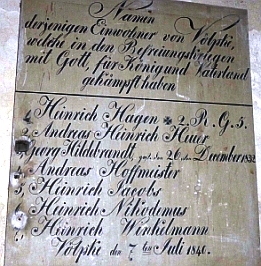 Namen
derjenigen Einwohner von Völpke,
welche in den Befreiungskriegen
mit Gott, für König und Vaterland
gekämpft haben
1, Hinrich Hagen 2. R. G. 3.
2, Andreas Heinrich Huer
3, Georg Hildebrandt, gest. den 26. ten December 1832
4, Andreas Hoffmeister
5, Heinrich Jacobs
6, Heinrich Nikodemus
7, Heinrich Winkelmann
Völpke den 7 ten Juli 1840.